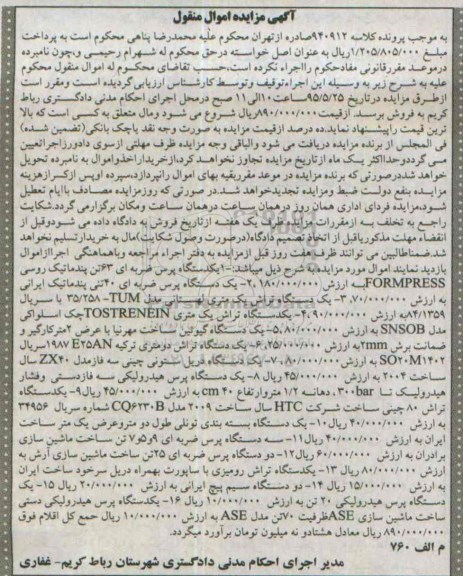 آگهی مزایده اموال منقول
به موجب پرونده کلاسه ۹۴۰۹۱۲صادره ازتهران محکوم علیه محمدرضا پناهی محکوم است به پرداخت
مبلغ ۱/۲۰۵/۸۰۵/۰۰۰ریال به عنوان اصل خواسته درحق محکوم له شهرام رحیمی و،چون نامبرده
درموعد مقررقانونی مفادحکوم رااجراء نکرده است،حسب تقاضای محکوم له اموال منقول محکوم
علیه به شرح زیر به وسیله این اجراءتوقیف وتوسط کارشناس ارزیابی گردیده است ومقرر است
ازطرق مزایده درتاریخ ۹۵/۵/۲۵ساعت۱۰الی۱۱ صبح درمحل اجرای احکام مدنی دادگستری رباط
کریم به فروش برسد. ازقیمت ۸۹۰/۰۰۰/۰۰۰ریال شروع می شود ومال متعلق به کسی است که بالا
ترین قیمت راپیشنهاد نماید.ده درصد ازقیمت مزایده به صورت وجه نقد یاچک بانکی(تضمین شده)
فی المجلس از برنده مزایده دریافت می شود والباقی وجه مزایده ظرف مهلتی ازسوی دادورزاجراتعیین
می گرددوحداکثر یک ماه ازتاریخ مزایده تجاوز نخواهد کرد،ازخریداراخذواموال به نامبرده تحویل
خواهد شددرصورتی که برنده مزایده در موعد مقرربقیه بهای اموال رانپردازد،سپرده اوپس ازکسرازهزینه
مزایده بنفع دولت ضبط ومزایده تجدیدخواهد شد.در صورتی که روزمزایده مصادف باایام تعطیل
شود،مزایده فردای اداری همان روز درهمان ساعت درهمان ساعت ومکان برگزارمی گردد.شکایت
راجع به تخلف به ازمقررات مزایده ظرف یک هفته ازتاریخ فروش به دادگاه داده می شودوقبل از
انقضاء مهلت مذکوریاقبل از اتخاذ تصمیم دادگاه(درصورت وصول شکایت)مال به خریدارتسلیم نخواهد
شد.ضمناطالبین می توانند ظرف هفت روز قبل ازمزایده به دفتر اجراء مراجعه وباهماهنگی اجرااازاموال
بازدید نمایند اموال مورد مزایده به شرح ذیل میباشد:۱-یکدستگاه پرس ضربه ای ۶۳تن پندماتیک روسی
FORMPRESSبه ارزش ۱۸۰/۰۰۰/۰۰۰-۲ یک دستگاه پرس ضربه ای ۴۰تنی پندماتیک ایرانی
به ارزش ۷۰/۰۰۰/۰۰۰-۳ یک دستگاه تراش یک متری لهستانی مدل TUM-۳۵/۲۵۸ با سریال
۸۴/۱۳۵۹به ارزش ۹۰/۰۰۰/۰۰۰-۴یکدستگاه تراش یک متری TOSTRENEINچک اسلواکی
مدل SNSOB به ارزش ۸۰/۰۰۰/۰۰۰-۵ یک دستگاه گیوتین ساخت مهرنیا با عرض ۲مترکارگیر و
ضمانت برش ۲mmبه ارزش ۲۵/۰۰۰/۰۰۰-۶یک دستگاه تراش دومتری ترکیه ۱۹۸۷E۲۵ANسریال
SO۲۰M۱۴۰۲ به ارزش ۸۰/۰۰۰/۰۰۰-۷ یک دستگاه فریل ستونی چینی سه فازمدل ZX۴۰ سال
ساخت ۲۰۰۴ به ارزش ۴۵/۰۰۰/۰۰۰ ریال ۸- یک دستگاه پرس هیدرولیکی سه فازدستی وفشار
هیدرولیک تا ۳۰۰bar، دهانه ۱/۲ متروارتفاع ۴۰ cm به ارزش ۴۵/۰۰۰/۰۰۰ ریال۹- یکدستگاه
تراش ۸۰ چینی ساخت شرکت HTC سال ساخت ۲۰۰۹ مدل CQ۶۲۳۰B شماره سریال ۳۴۹۵۶
به ارزش ۴۰/۰۰۰/۰۰۰ ریال۱۰- یک دستگاه بسته بندی تونلی طول دو متروعرض یک متر ساخت
ایران به ارزش ۴۰/۰۰۰/۰۰۰ ریال۱۱-سه دستگاه پرس ضربه ای ۵و۷و۹ تن ساخت ماشین سازی
برادران به ارزش ۶۰/۰۰۰/۰۰۰ ریال۱۲- دو دستگاه پرس ضربه ای ۲۵تن ساخت ماشین سازی آرش به
ارزش ۸۰/۰۰۰/۰۰۰ ریال ۱۳- یکدستگاه تراش رومیزی با ساپورت بهمراه دریل سرخود ساخت ایران
به ارزش ۱۵/۰۰۰/۰۰۰ ریال ۱۴- دو دستگاه سیم پیچ ایرانی به ارزش ۲۰/۰۰۰/۰۰۰ ریال ۱۵- یک
دستگاه پرس هیدرولیکی ۲۰ تن به ارزش ۱۰/۰۰۰/۰۰۰ ریال ۱۶- یکدستگاه پرس هیدرولیکی دستی
ساخت ماشین سازی ASEظرفیت ۷۰تن مدل ASE به ارزش ۱۰/۰۰۰/۰۰۰ ریال جمع کل اقلام فوق
۸۹۰/۰۰۰/۰۰۰ ریال معادل هشتادو نه میلیون تومان برآورد میگردد.
م الف ۷۶۰
مدیر اجرای احکام مدنی دادگستری شهرستان رباط کریم- غفاری